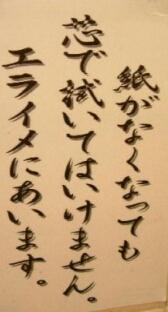 紙がなくなっても
芯で拭いてはいけません。
エライメにあいます。